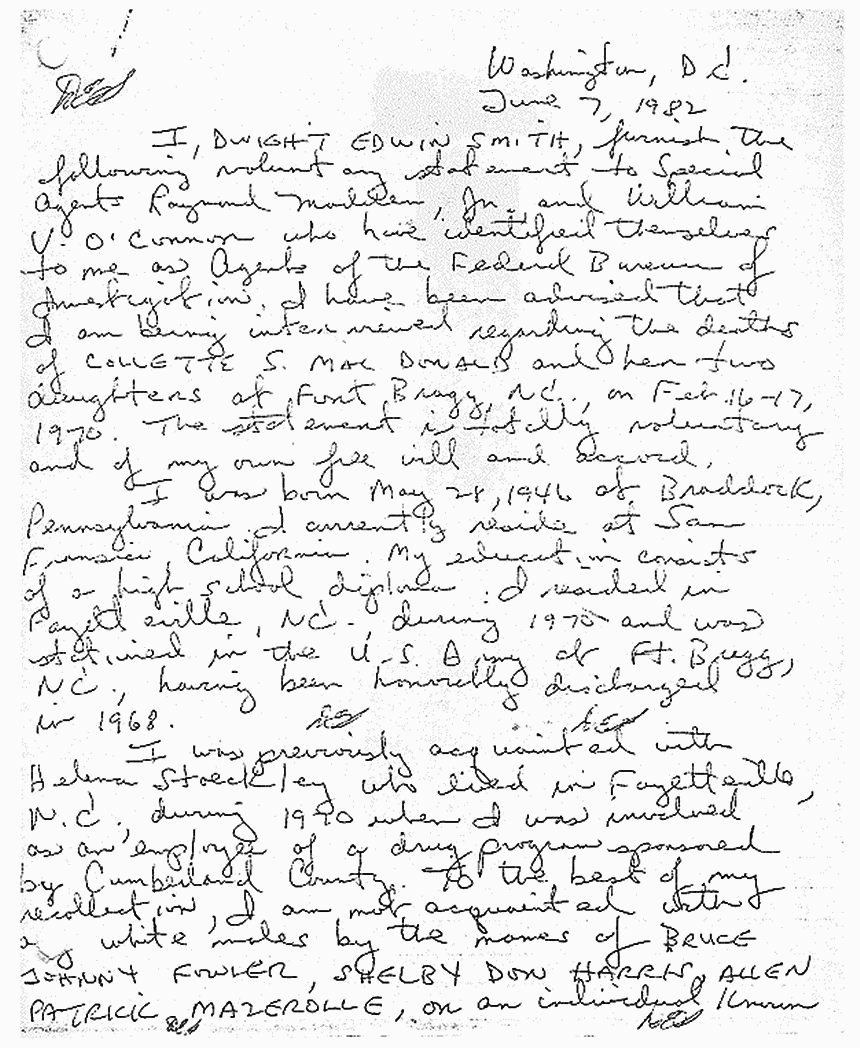 DES
Washington, D.C.
June 7, 1982
I, DWIGHT EDWIN SMITH, furnish the
following voluntary statement to Special
Agents Raymond Madden, Jr. and William
V. O'Connor who have identified themselves
to me as Agents of the Federal Bureau of
Investigation. I have been advised that
I am being interviewed regarding the deaths
of COLLETTE S. MAC DONALD and her two
daughters at Fort Bragg, NC., on Feb. 16-17,
1970. The statement is totally voluntary
and of my own free will and accord.
I was born May 28, 1946 at Braddock,
Pennsylvania. I currently reside at San
Fransico, California. My education consists
of a high school diploma. I resided in
Fayetteville, NC., during 1970 and was
stationed in the U.S. Army at Ft. Bragg,
NC., having been honorably discharged
in 1968. DES DES
I was previously acquainted with
Helena Stoeckley who lived in Fayetteville,
N.C. during 1970 when I was involved
as an employee of a drug program sponsored
by Cumberland County. To the best of my
recollection, I am not acquainted with
any white males by the names of BRUCE
JOHNNY FOWLER, SHELBY DON HARRIS, ALLEN
PATRICK MAZEROLLE, or an individual known
DES DES